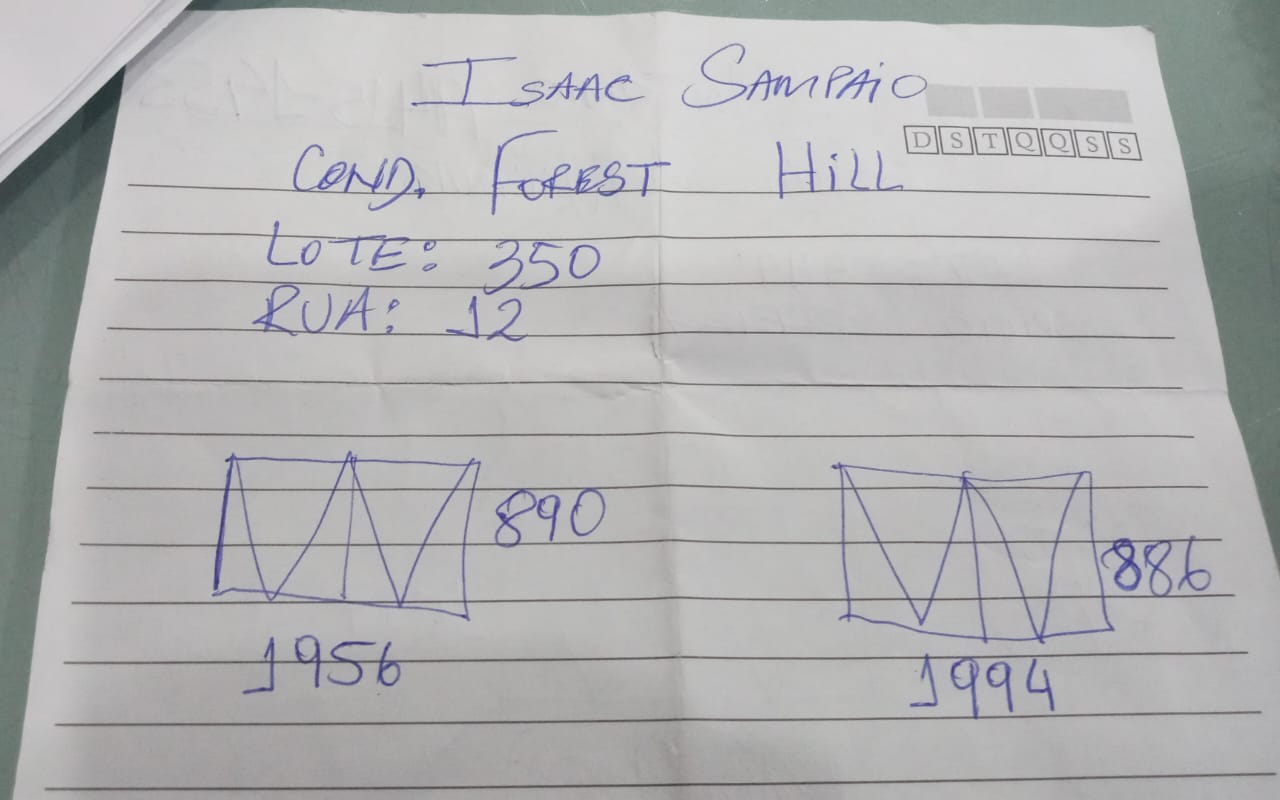 ISAAC SAMPAiO
D S T Q Q S S
COND. FOREST HiLL
LOTE: 350
RUA: 12
890
1956
886
1994